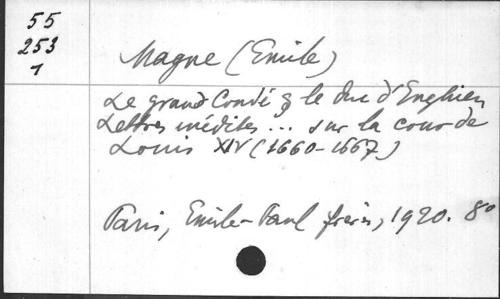 55
253
1
Magne (Emile)
Le grand Condé & le duc d'Enghien
Lettres inédites ... sur la cour de
Louis XIV (1660-1667)
Paris, Emile-Paul frères, 1920. 8º